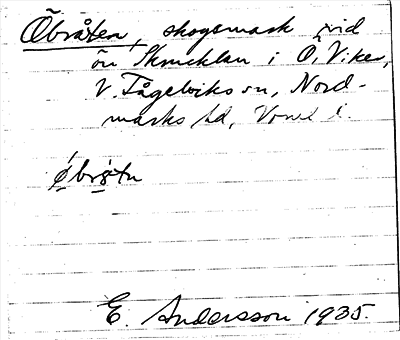 Öbråten, skogsmark vid
ån Skrucklan i Ö. Viker,
V. Fågelviks sn, Nord-
marks hd, Vrml l.
E. Andersson 1935.